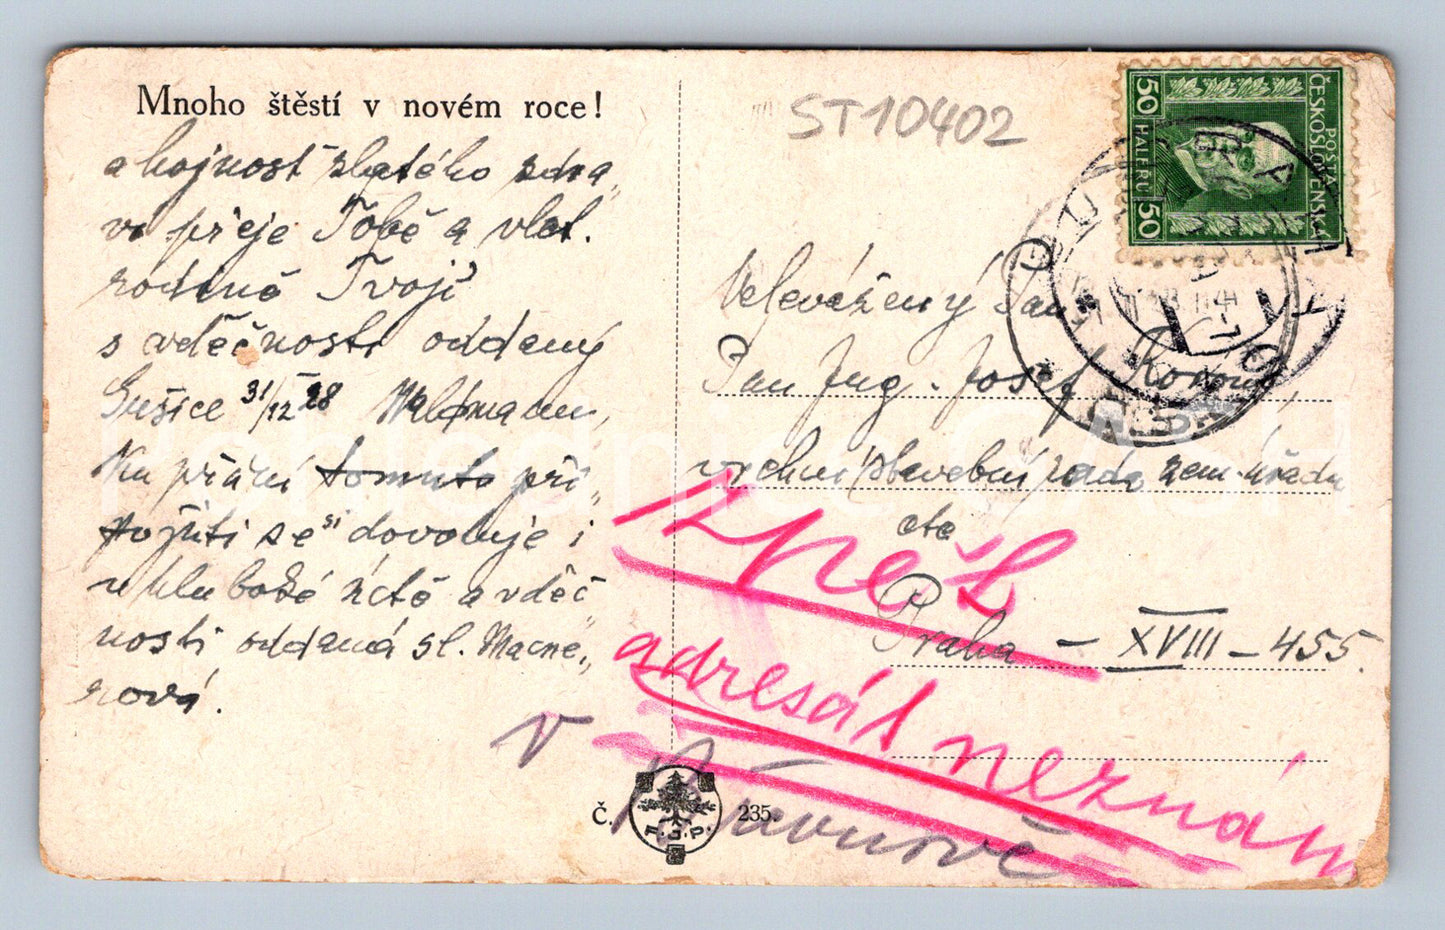 Mnoho štěstí v novém roce!
a hojnost zlatého zdra„
ví přeje Tobě a vlct.
rodině Tvojí
s vděčnosti oddaný
Sušice 31/12 28 Waldmann,
Na přání tomuto při„
pojiti se si dovoluje i
v hluboké úctě a vděč
nosti oddaná sl. Macne„
rová.
ST10402
POSTA
ČESKOSLOVENSKÁ
50 HALÉŘŮ 50
Velevážený Pan
Pan Jng. Josef
vrchní stavební rada zem. úřadu
etc
Praha – XVIII – 455.
Zpět
adresát neznám
v Břevnově
Č. 235.
F.J.P.
Pohlednice CASH